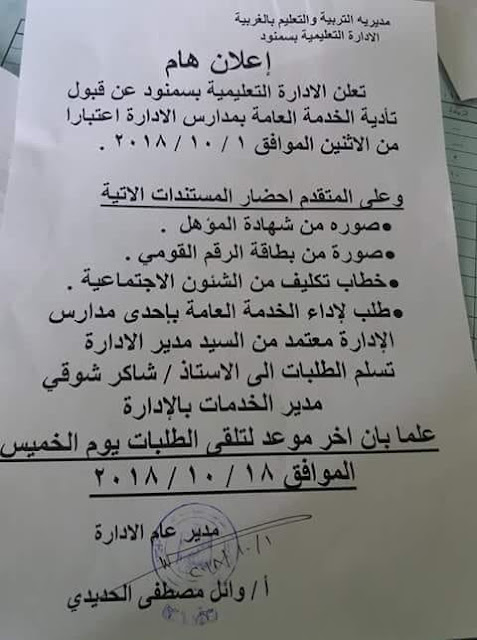 مديريه التربية والتعليم بالغربية
الادارة التعليمية بسمنود
إعلان هام
تعلن الادارة التعليمية بسمنود عن قبول
تأدية الخدمة العامة بمدارس الادارة اعتبارا
من الاثنين الموافق ١ / ١٠ / ٢٠١٨ .
وعلى المتقدم احضار المستندات الاتية
• صوره من شهادة المؤهل .
• صورة من بطاقة الرقم القومي .
• خطاب تكليف من الشئون الاجتماعية .
• طلب لإداء الخدمة العامة بإحدى مدارس
الإدارة معتمد من السيد مدير الادارة
تسلم الطلبات الى الاستاذ / شاكر شوقي
مدير الخدمات بالإدارة
علما بان اخر موعد لتلقى الطلبات يوم الخميس
الموافق ١٨ / ١٠ / ٢٠١٨
مدير عام الادارة
أ / وائل مصطفى الحديدي